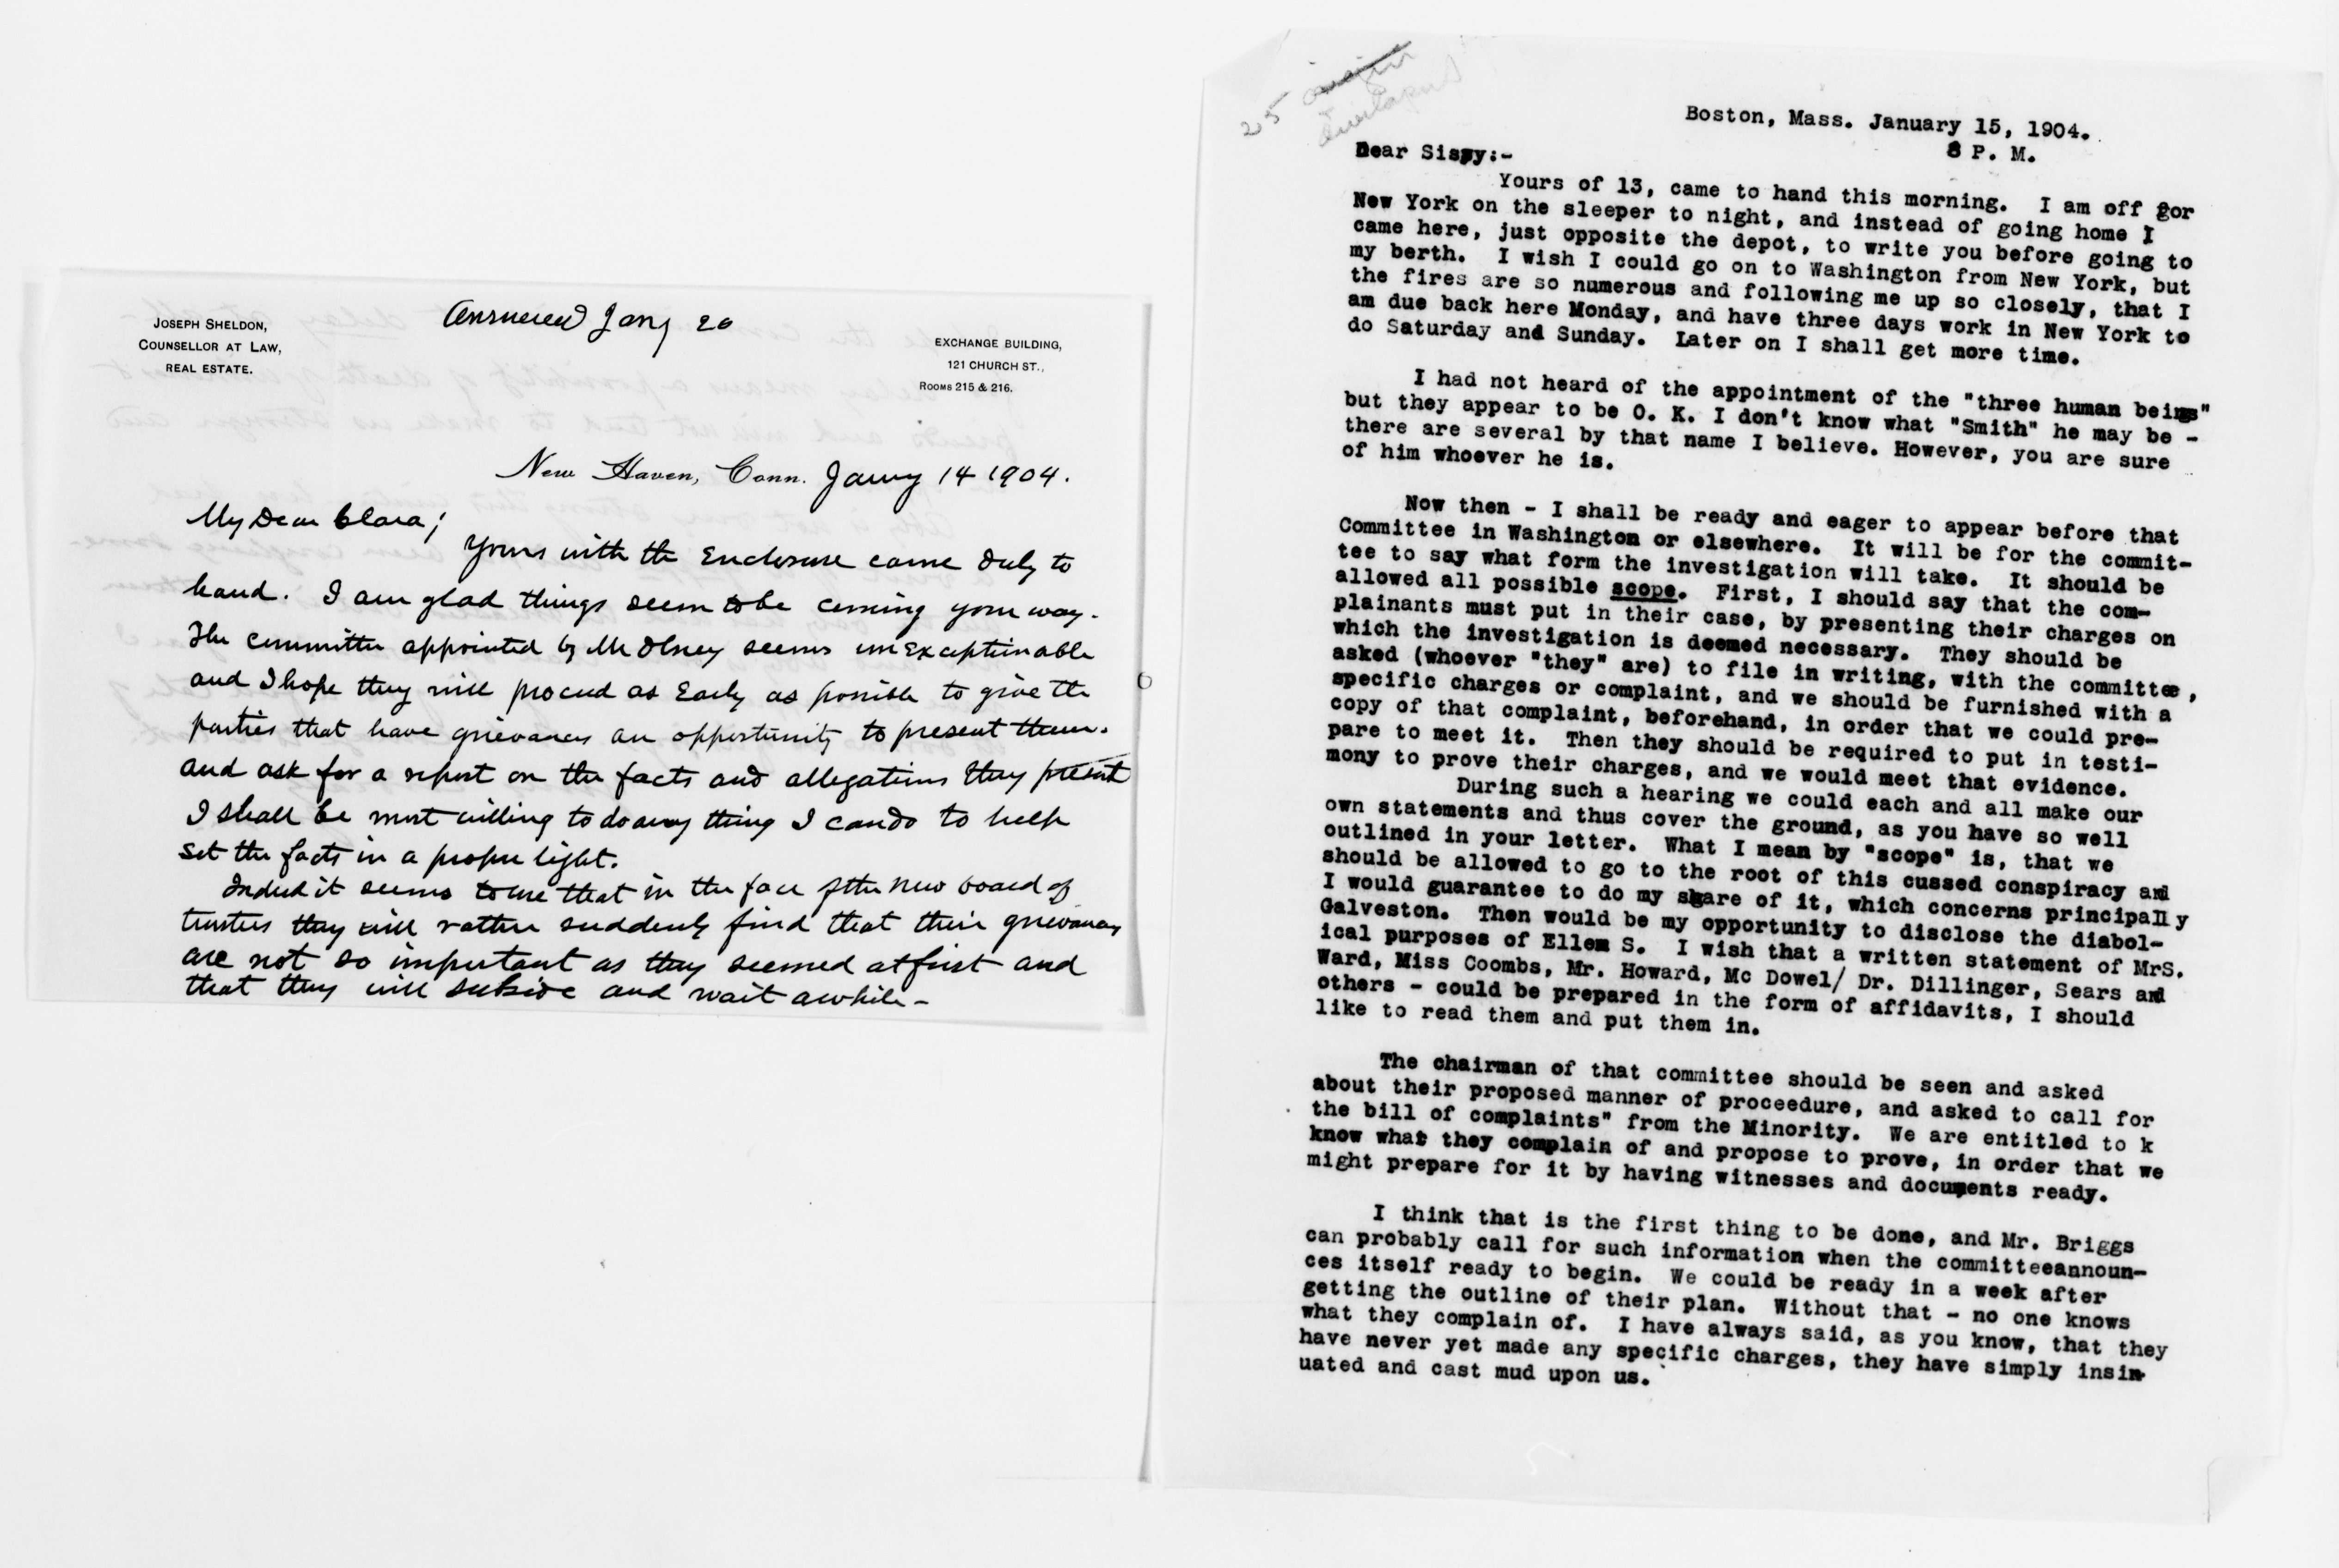 Answered Jany 20
JOSEPH SHELDON,
COUNSELLOR AT LAW,
REAL ESTATE.
EXCHANGE BUILDING,
121 CHURCH ST.,
ROOMS 215 & 216.
New Haven, Conn. Jany 14 1904.
My Dear Clara;
Yours with the Enclosure came duly to
hand. I am glad things seem to be coming your way.
The committee appointed by Mr Olney seems unexceptionable
and I hope they will proceed as Early as possible to give the
parties that have grievances an opportunity to present them.
and ask for a report on the facts and allegations they present
I shall be most willing to do any thing I can do to help
set the facts in a proper light.
Indeed it seems to me that in the face of the new board of
trustees they will rather suddenly find that their grievances
are not so important as they seemed at first and
that they will subside and wait awhile -
25
Boston, Mass. January 15, 1904.
8 P. M.
Dear Sispy:-
Yours of 13, came to hand this morning. I am off gor
New York on the sleeper to night, and instead of going home I
came here, just opposite the depot, to write you before going to
my berth. I wish I could go on to Washington from New York, but
the fires are so numerous and following me up so closely, that I
am due back here Monday, and have three days work in New York to
do Saturday and Sunday. Later on I shall get more time.
I had not heard of the appointment of the "three human beings"
but they appear to be O. K. I don't know what "Smith" he may be -
there are several by that name I believe. However, you are sure
of him whoever he is.
Now then - I shall be ready and eager to appear before that
Committee in Washington or elsewhere. It will be for the commit-
tee to say what form the investigation will take. It should be
allowed all possible scope. First, I should say that the com-
plainants must put in their case, by presenting their charges on
which the investigation is deemed necessary. They should be
asked (whoever "they" are) to file in writing, with the committee,
specific charges or complaint, and we should be furnished with a
copy of that complaint, beforehand, in order that we could pre-
pare to meet it. Then they should be required to put in testi-
mony to prove their charges, and we would meet that evidence.
During such a hearing we could each and all make our
own statements and thus cover the ground, as you have so well
outlined in your letter. What I mean by "scope" is, that we
should be allowed to go to the root of this cussed conspiracy and
I would guarantee to do my share of it, which concerns principally
Galveston. Then would be my opportunity to disclose the diabol-
ical purposes of Ellem S. I wish that a written statement of MrS.
Ward, Miss Coombs, Mr. Howard, Mc Dowel/ Dr. Dillinger, Sears and
others - could be prepared in the form of affidavits, I should
like to read them and put them in.
The chairman of that committee should be seen and asked
about their proposed manner of proceedure, and asked to call for
the bill of complaints" from the Minority. We are entitled to k
know what they complain of and propose to prove, in order that we
might prepare for it by having witnesses and documents ready.
I think that is the first thing to be done, and Mr. Briggs
can probably call for such information when the committeeannoun-
ces itself ready to begin. We could be ready in a week after
getting the outline of their plan. Without that - no one knows
what they complain of. I have always said, as you know, that they
have never yet made any specific charges, they have simply insin-
uated and cast mud upon us.